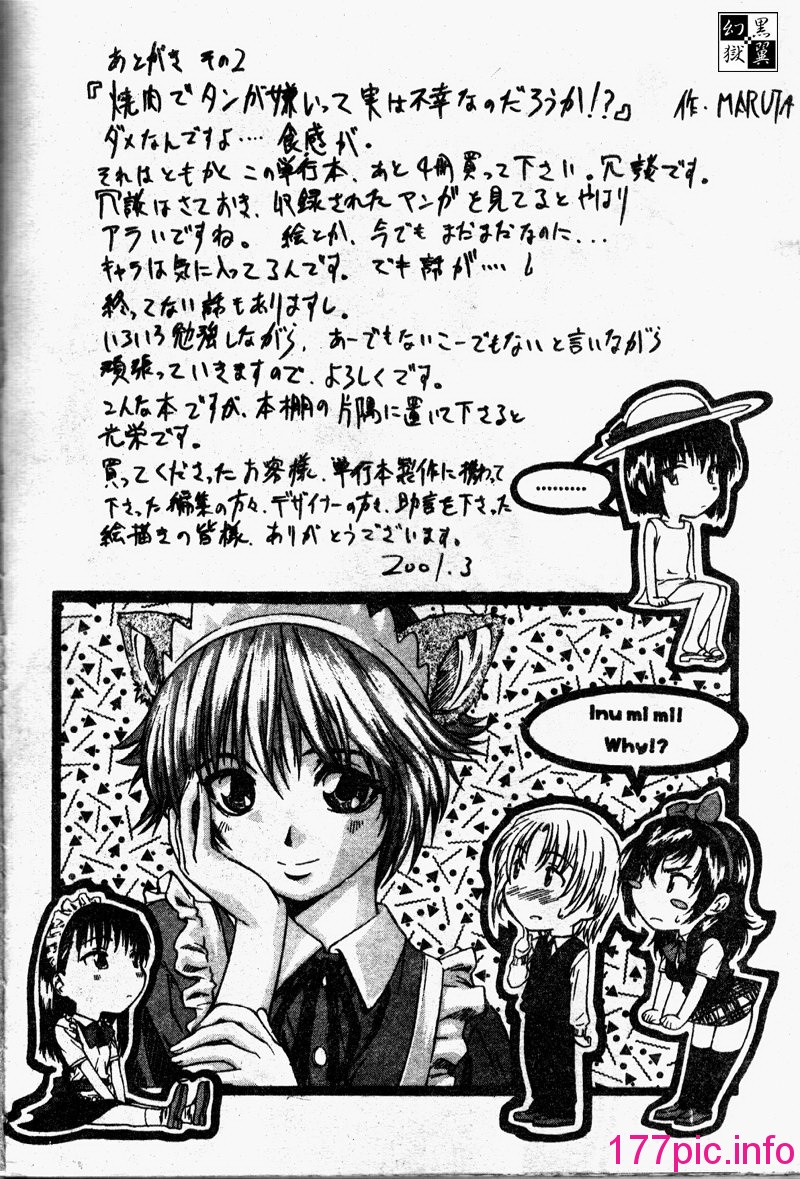 黒翼
幻獄
あとがき その2
『焼肉でタンが嫌いって実は不幸なのだろうか!?』 作・MARUTA
ダメなんですよ…. 食感が。
それはともかく この単行本、あと4冊買って下さい。冗談です。
冗談はさておき、収録されたマンガを見てるとやはり
アラいですね。 絵とか、今でも まだまだなのに...
キャラは気に入ってるんです。でも 話が….
終ってない話もありますし。
いろいろ勉強しながら、あーでもないこーでもないと言いながら
頑張っていきますので、よろしくです。
こんな本ですが、本棚の片隅に置いて下さると
光栄です。
買ってくださったお客様、単行本製作に携わって
下さった編集の方々、デザイナーの方々、助言を下さった
絵描きの皆様、ありがとうございます。
2001.3
.........
Inu mi mi!
Why!?
177pic.info